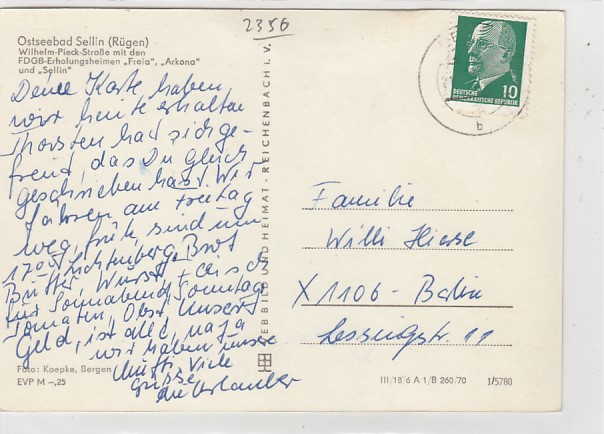 2356
Ostseebad Sellin (Rügen)
Wilhelm-Pieck-Straße mit den
FDGB-Erholungsheimen „Freia", „Arkona"
und „Sellin"
Deine Karte haben
wir heute erhalten
Thorsten hat sich ge-
freut, das Du gleich
geschrieben hast. Wir
fahren am Freitag
weg, früh sind um
17.05 Lichtenberg. Brot
Butter, Wurst
für Sonnabend Sonntag
Tomaten, Obst. Unser
Geld, ist alle, naja
wir haben unsre
Viele
Grüsse
die Urlauber
Foto: Koepke, Bergen
EVP M –,25
VEB BILD UND HEIMAT · REICHENBACH I. V.
DEUTSCHE
DEMOKRATISCHE REPUBLIK
10
b
Familie
Willi Hierse
X 1106 - Berlin
Lessingstr. 11
III/18/6 A 1/B 260/70 1/5780